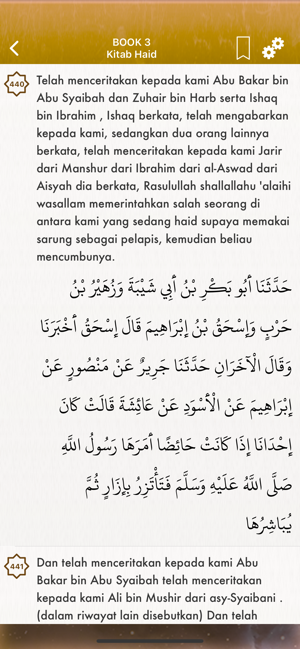 BOOK 3
Kitab Haid
440
Telah menceritakan kepada kami Abu Bakar bin
Abu Syaibah dan Zuhair bin Harb serta Ishaq
bin Ibrahim , Ishaq berkata, telah mengabarkan
kepada kami, sedangkan dua orang lainnya
berkata, telah menceritakan kepada kami Jarir
dari Manshur dari Ibrahim dari al-Aswad dari
Aisyah dia berkata, Rasulullah shallallahu 'alaihi
wasallam memerintahkan salah seorang di
antara kami yang sedang haid supaya memakai
sarung sebagai pelapis, kemudian beliau
mencumbunya.
حَدَّثَنَا أَبُو بَكْرِ بْنُ أَبِي شَيْبَةَ وَزُهَيْرُ بْنُ
حَرْبٍ وَإِسْحَقُ بْنُ إِبْرَاهِيمَ قَالَ إِسْحَقُ أَخْبَرَنَا
وَقَالَ الْآخَرَانِ حَدَّثَنَا جَرِيرٌ عَنْ مَنْصُورٍ عَنْ
إِبْرَاهِيمَ عَنْ الْأَسْوَدِ عَنْ عَائِشَةَ قَالَتْ كَانَ
إِحْدَانَا إِذَا كَانَتْ حَائِضًا أَمَرَهَا رَسُولُ اللَّهِ
صَلَّى اللَّهُ عَلَيْهِ وَسَلَّمَ فَتَأْتَزِرُ بِإِزَارٍ ثُمَّ
يُبَاشِرُهَا
441
Dan telah menceritakan kepada kami Abu
Bakar bin Abu Syaibah telah menceritakan
kepada kami Ali bin Mushir dari asy-Syaibani .
(dalam riwayat lain disebutkan) Dan telah